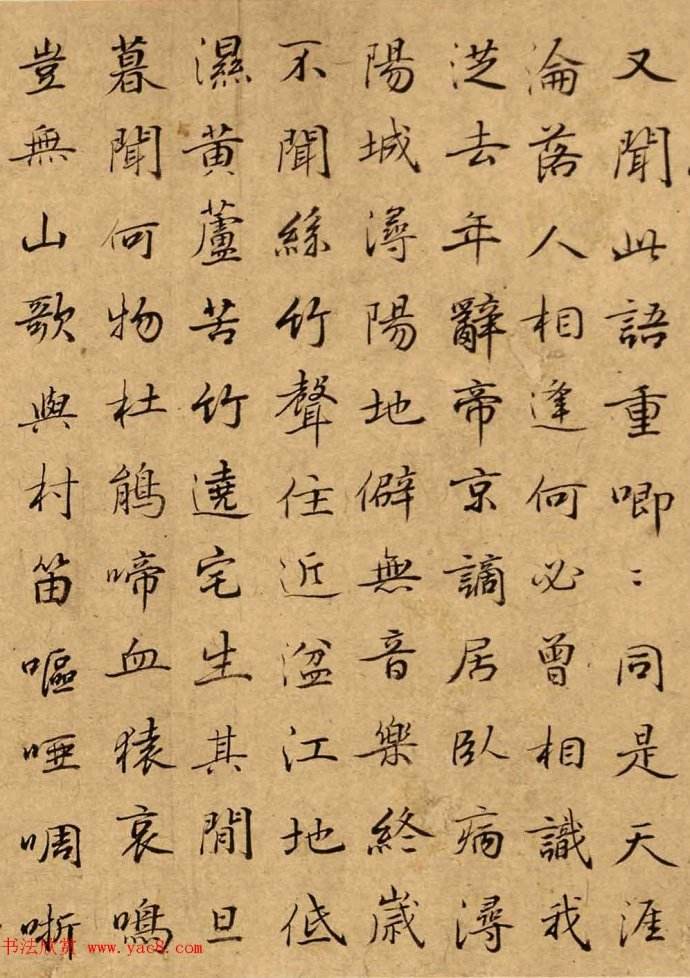 又聞此語重唧〻同是天涯
淪落人相逢何必曾相識我
從去年辭帝京謫居臥病潯
陽城潯陽地僻無音樂終歲
不聞絲竹聲住近湓江地低
濕黃蘆苦竹遶宅生其閒旦
暮聞何物杜鵑啼血猿哀鳴
豈無山歌與村笛嘔啞啁哳
书法欣赏 www.yac8.com